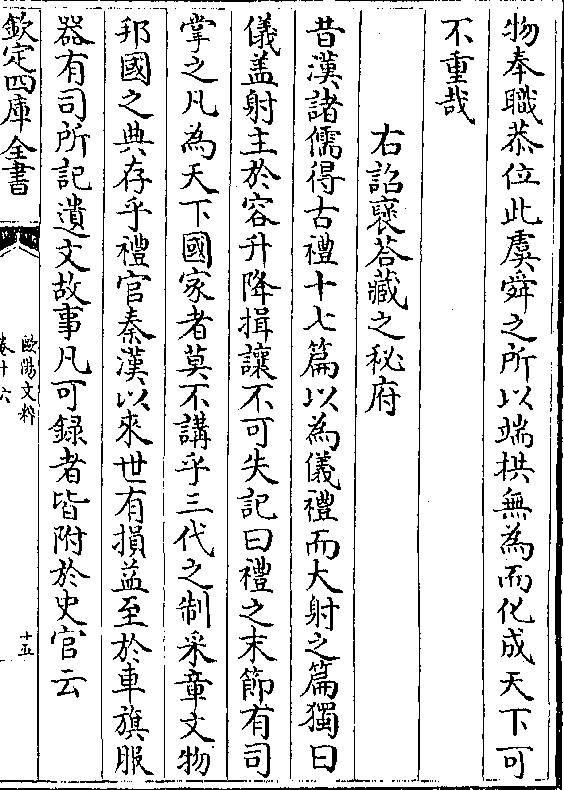 物奉職恭位此虞舜之所以端拱無為而化成天下可
不重哉
右詔褒荅藏之秘府
昔漢諸儒得古禮十七篇以為儀禮而大射之篇獨曰
儀蓋射主於容升降揖讓不可失記曰禮之末節有司
掌之凡為天下國家者莫不講乎三代之制采章文物
邦國之典存乎禮官秦漢以來世有損益至於車旗服
器有司所記遺文故事凡可録者皆附於史官云
欽定四庫全書
歐陽文粹
卷十六
十五